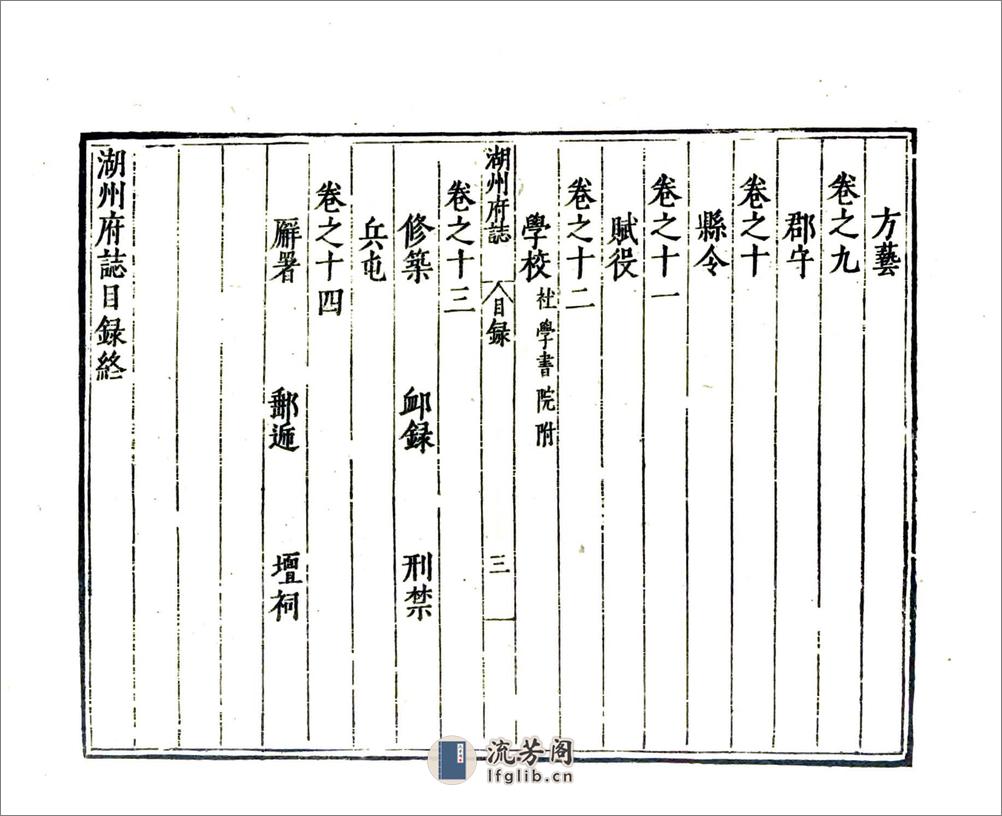 方藝
卷之九
郡守
卷之十
縣令
卷之十一
賦役
卷之十二
學校 社學書院附
湖州府誌 目録 三
卷之十三
修築 卹録 刑禁
兵屯
卷之十四
廨署 郵遞 壇祠
湖州府誌目録終
流芳阁
lfglib.cn